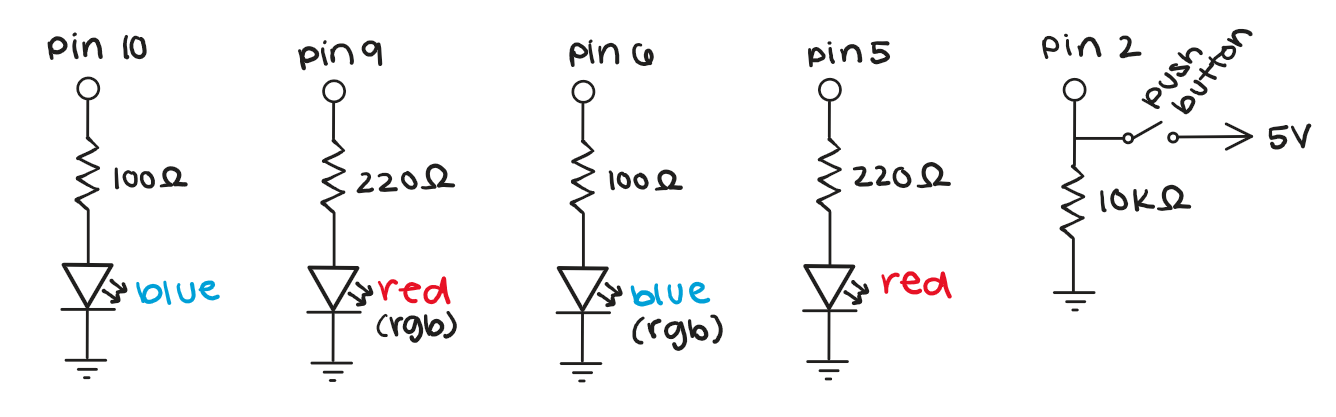 pin 10
100Ω
blue
pin 9
220Ω
red
(rgb)
pin 6
100Ω
blue
(rgb)
pin 5
220Ω
red
pin 2
push
button
5V
10KΩ